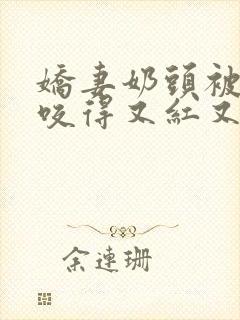 嬌妻奶頭被
咬得又紅又
余連珊